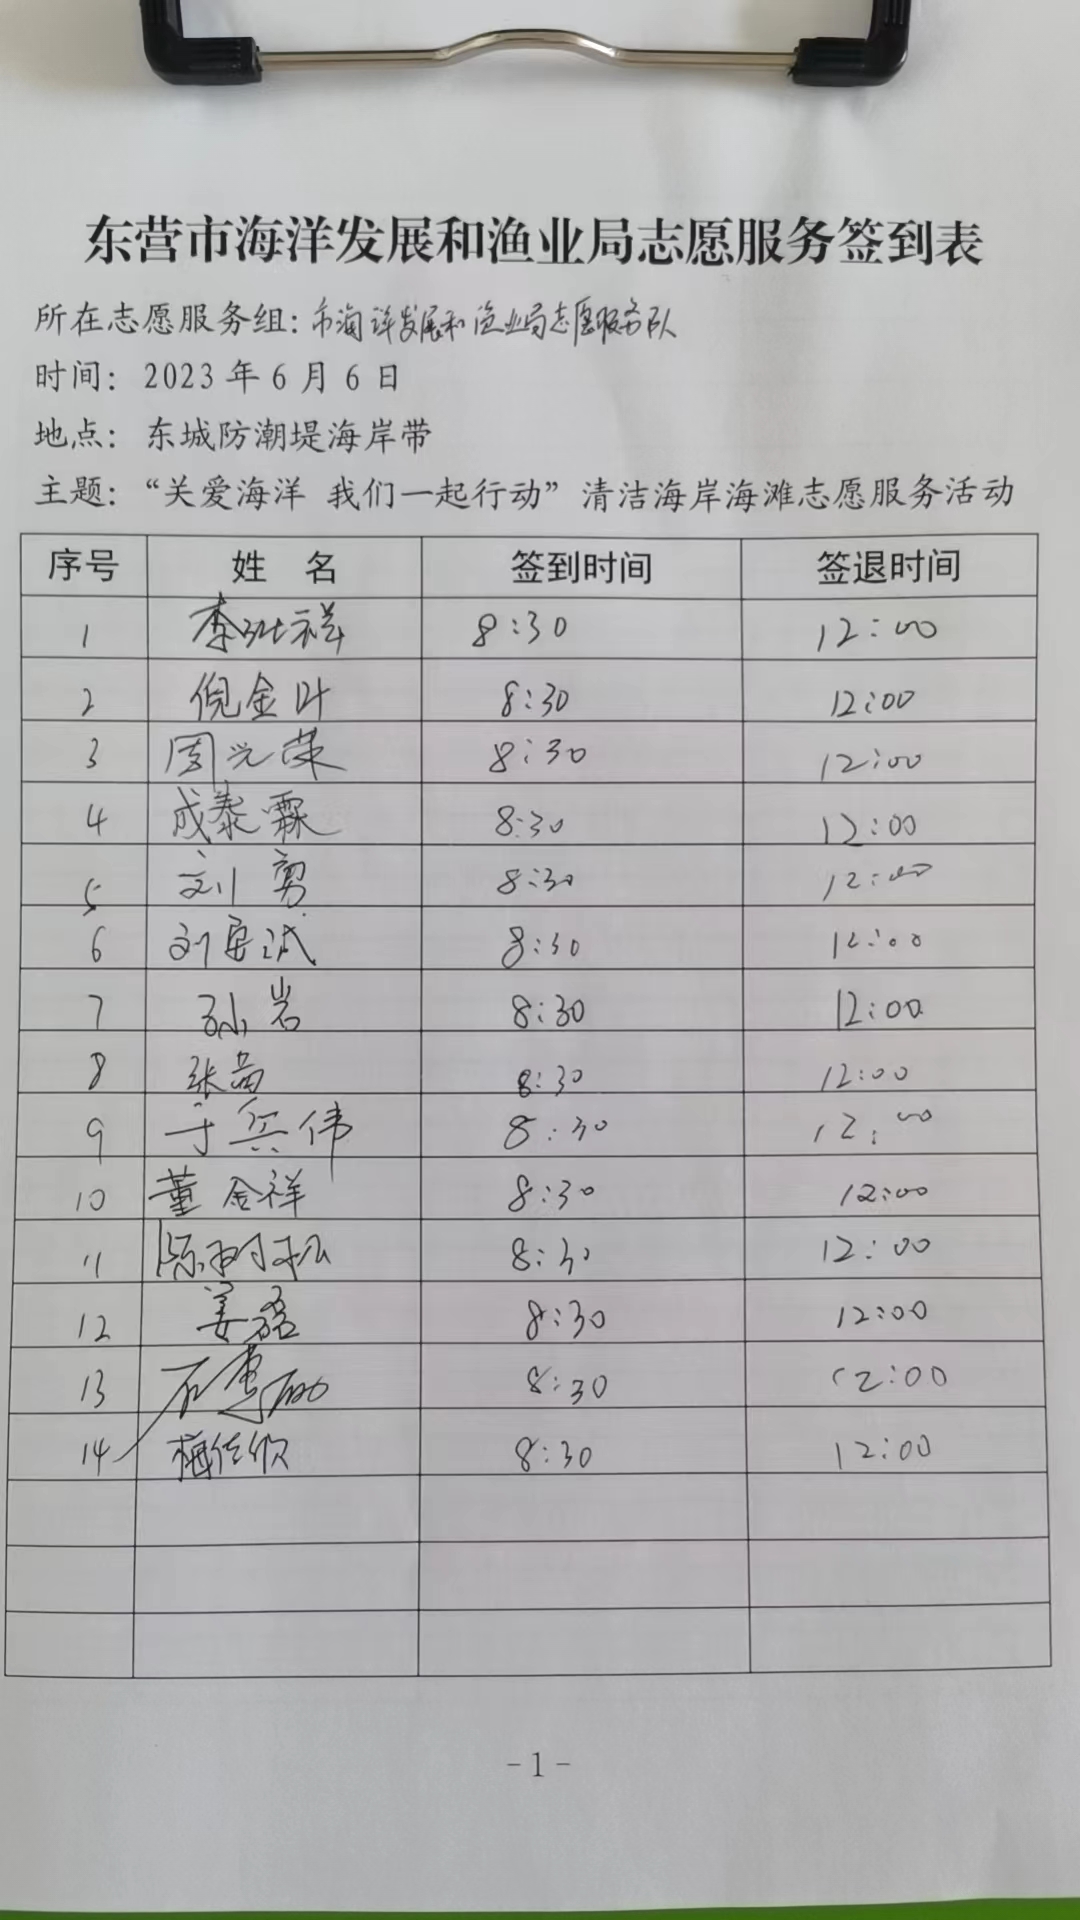 东营市海洋发展和渔业局志愿服务签到表
所在志愿服务组：市海洋发展和渔业局志愿服务队
时间： 2023 年 6 月 6 日
地点： 东城防潮堤海岸带
主题：“关爱海洋 我们一起行动”清洁海岸海滩志愿服务活动
序号 姓 名 签到时间 签退时间
1 李 祥 8:30 12:00
2 倪金叶 8:30 12:00
3 周光荣 8:30 12:00
4 成泰霖 8:30 12:00
5 刘勇 8:30 12:00
6 刘 诚 8:30 12:00
7 孙岩 8:30 12:00
8 张苗 8:30 12:00
9 于兵伟 8:30 12:00
10 董金祥 8:30 12:00
11 陈树松 8:30 12:00
12 姜 8:30 12:00
13 8:30 12:00
14 梅佳欣 8:30 12:00
- 1 -